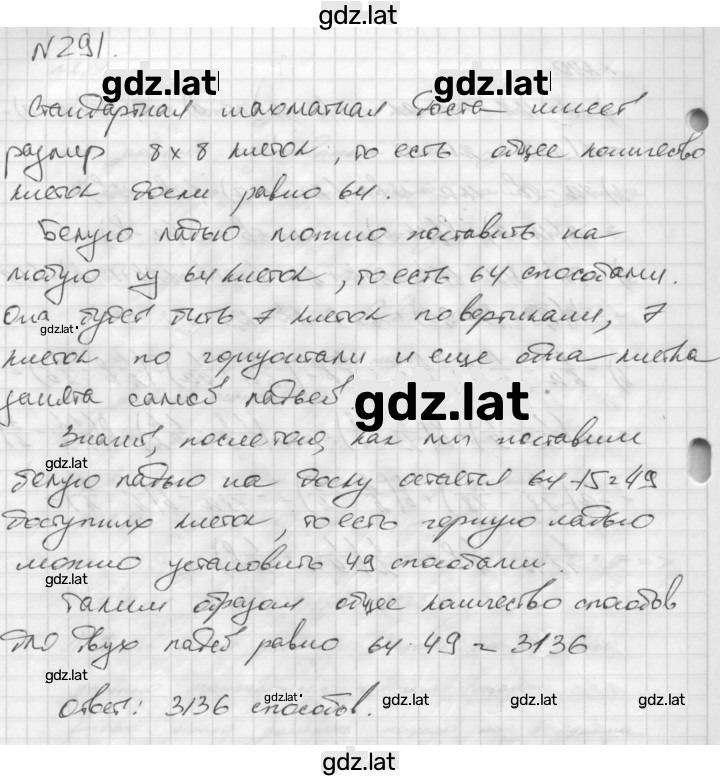 gdz.lat
N291.
gdz.lat gdz.lat
Стандартная шахматная доста имеет
размер 8×8 клеток, то есть общее количество
клеток доски равно 64.
Белую ладью можно поставить на
любую из 64 клеток, то есть 64 способами.
Она будет бить 7 клеток по вертикали, 7
gdz.lat
клеток по горизонтали и еще одна клетка
занята самой ладьей
gdz.lat
Значит, после того, как мы поставим
gdz.lat
белую ладью на доску остается 64-15=49
доступных клеток, то есть черную ладью
можно установить 49 способами.
gdz.lat
Таким образом общее количество способов
для двух ладей равно 64·49=3136
gdz.lat
Ответ: 3136 способов.
gdz.lat gdz.lat gdz.lat gdz.lat
gdz.lat